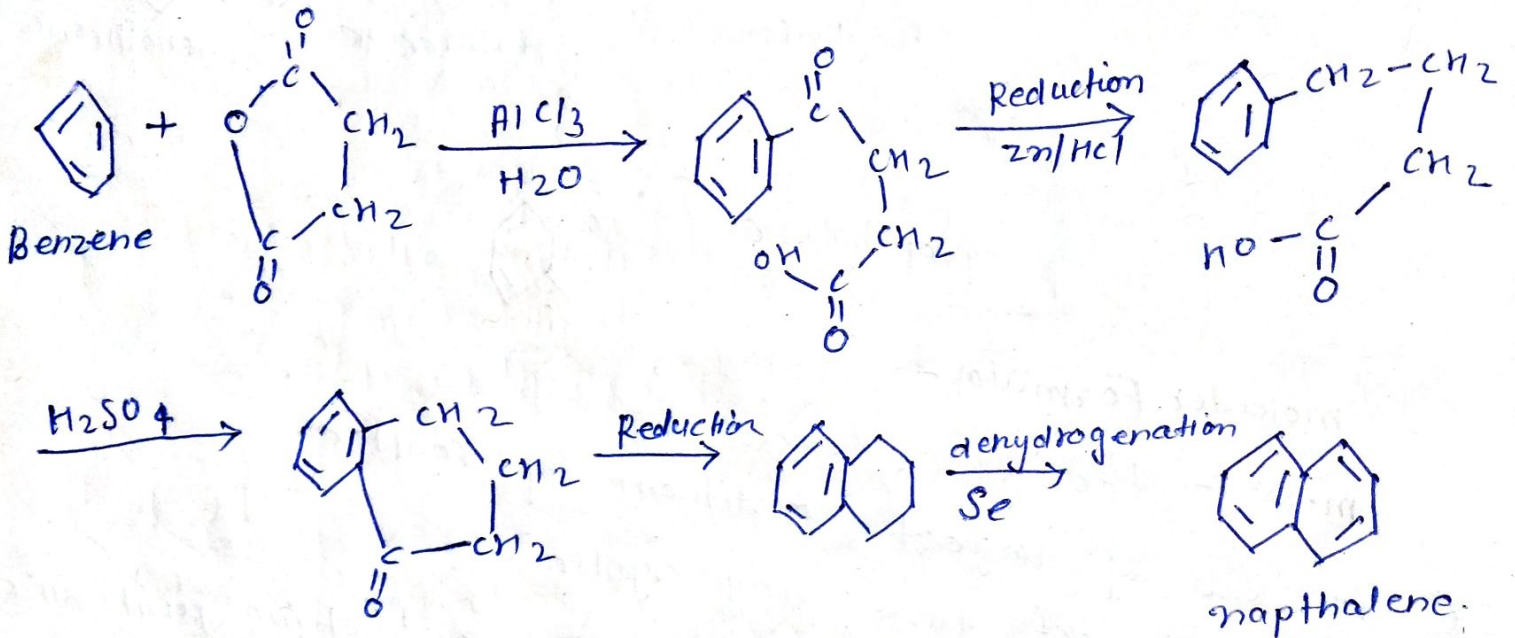 O
C
O
CH2
CH2
C
O
+
Benzene
AlCl3
H2O
O
C
CH2
CH2
OH
C
O
Reduction
Zn/HCl
CH2-CH2
CH2
HO-C
O
H2SO4
CH2
CH2
C-CH2
O
Reduction
dehydrogenation
Se
napthalene.